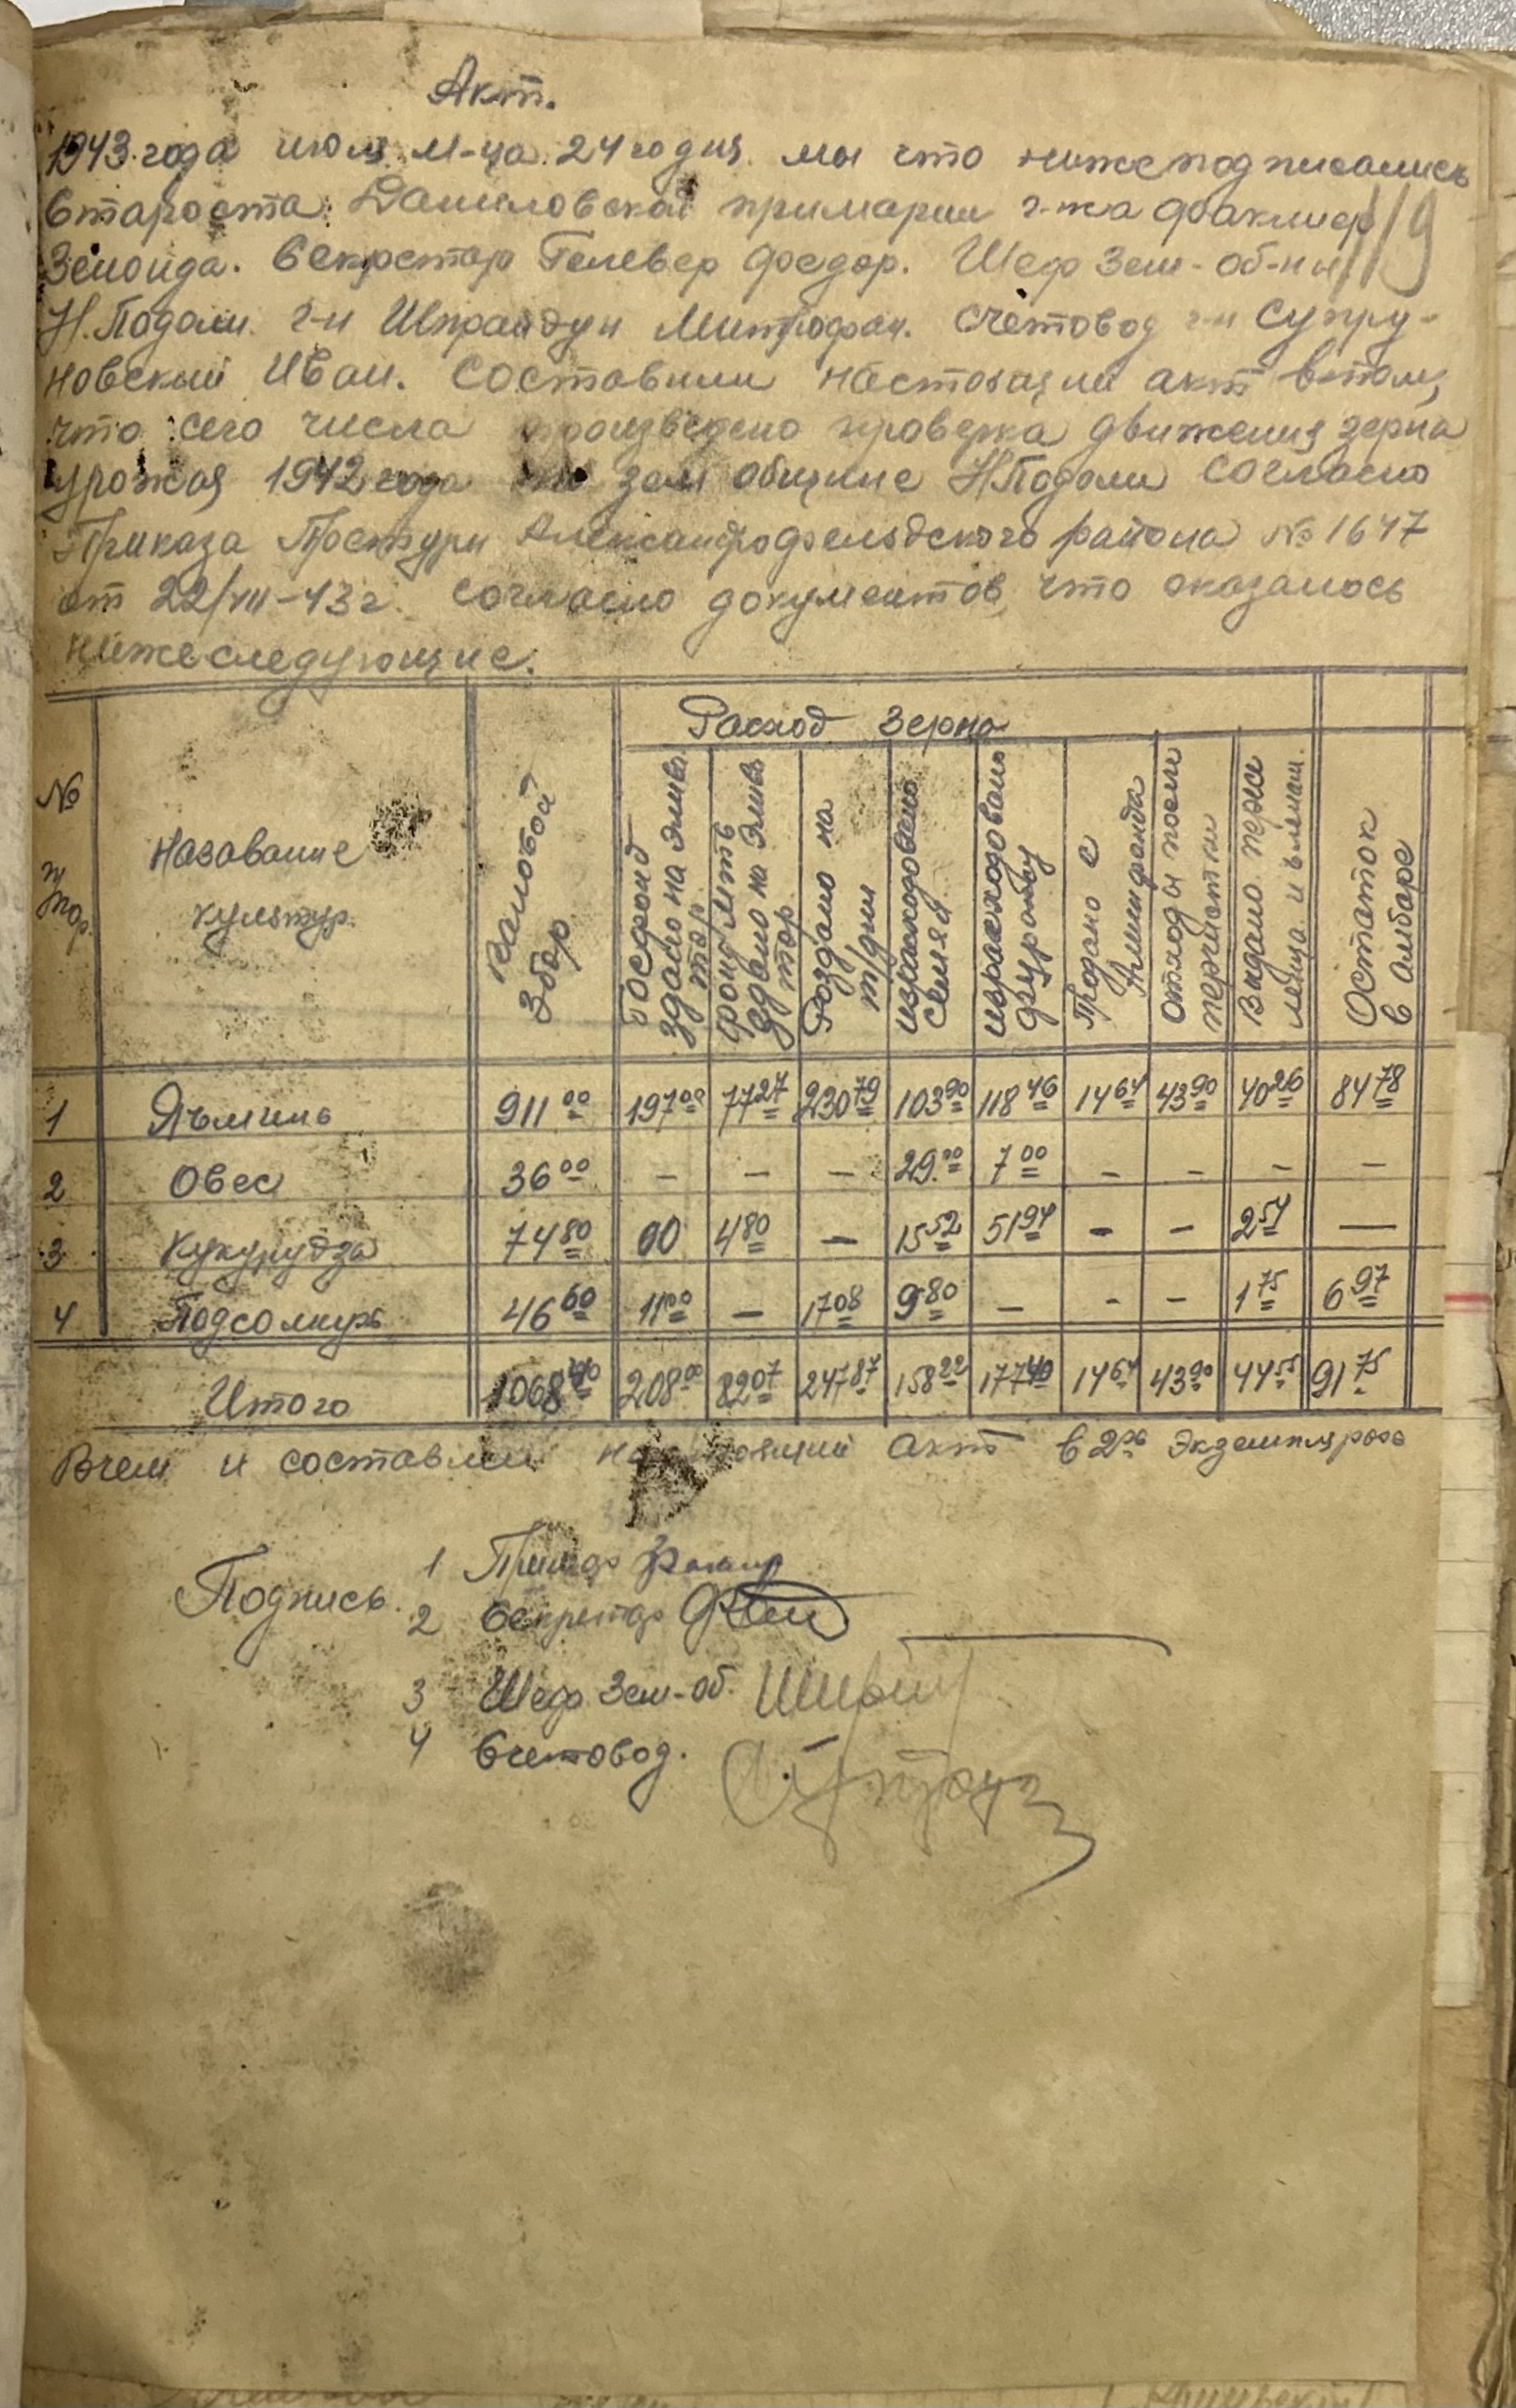 Акт.
1943 года июля м-ца 24го дня мы что нижеподписались
Староста Даниловской примарии г-жа Факлиер
119
Зенонда. Секретар Гелевер Федор. Шеф Зем-об-ны
Н.Подоли г-н Митрофан. Счетовод г-н Супру-
новский Иван. Составили настоящий акт в том,
что сего числа произведено проверка движения зерна
урожая 1942 года по зем общине Н.Подоли согласно
Приказа Претури Александрфельдского района № 1647
от 22/VII-43 г. согласно документов, что оказалось
нижеследующие.
№ Назавание культур. Валовой Збор Расход Зерна Остаток в амбаре
Госфонд здано на элив. тор фонд здано на элив тор Роздано на т/дни израсходовано семена израсходовано фуражу Продано с Админ фонда отходы после перчистки Видано
1 Ячминь 911 00 197 00 77 27 230 79 103 90 118 46 14 64 43 90 40 26 84 78
2 Овес 36 00 — — — 29 00 7 00 — — — —
3 Кукурудза 74 80 00 4 80 — 15 52 51 94 — — 2 54 —
4 Подсолнух 46 60 11 00 — 17 08 9 80 — — — 1 75 6 97
Итого 1068 40 208 00 82 07 247 87 158 22 177 40 14 64 43 90 44 55 91 75
Вчем и составлен настоящий акт в 2ох экземплярах
Подпись.
1 Примар
2 Секретар
3 Шеф Зем-об.
4 Счетовод.